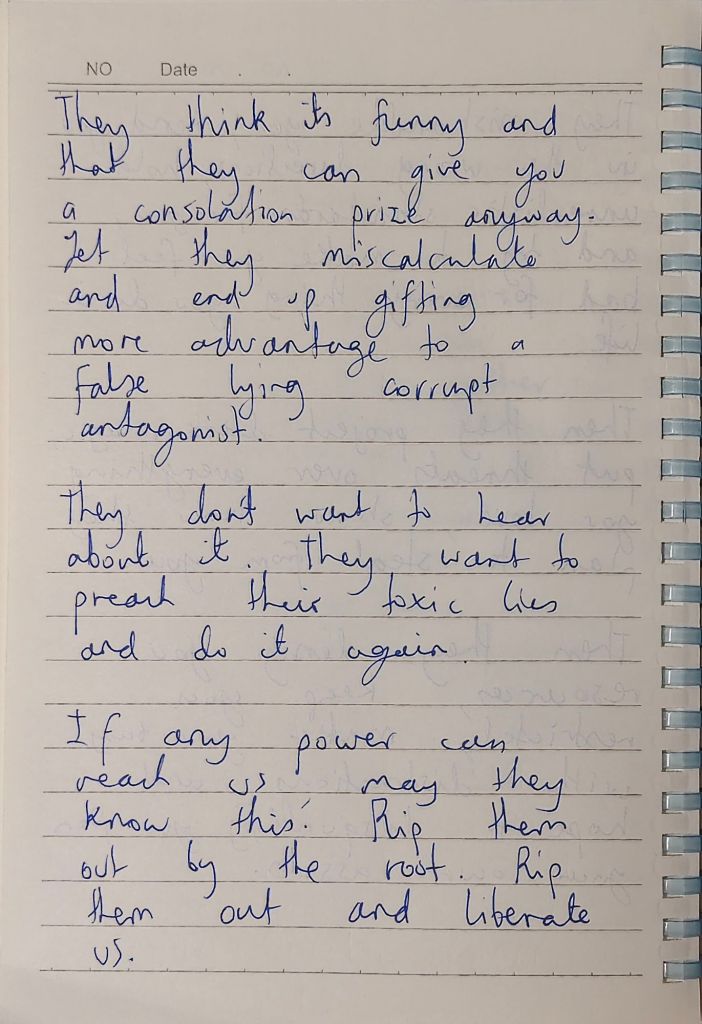 NO Date . .
They think its funny and
that they can give you
a consolation prize anyway.
Yet they miscalculate
and end up gifting
more advantage to a
false lying corrupt
antagonist.
They don't want to hear
about it. They want to
preach their toxic lies
and do it again.
If any power can
reach us may they
know this: Rip them
out by the root. Rip
them out and liberate
us.